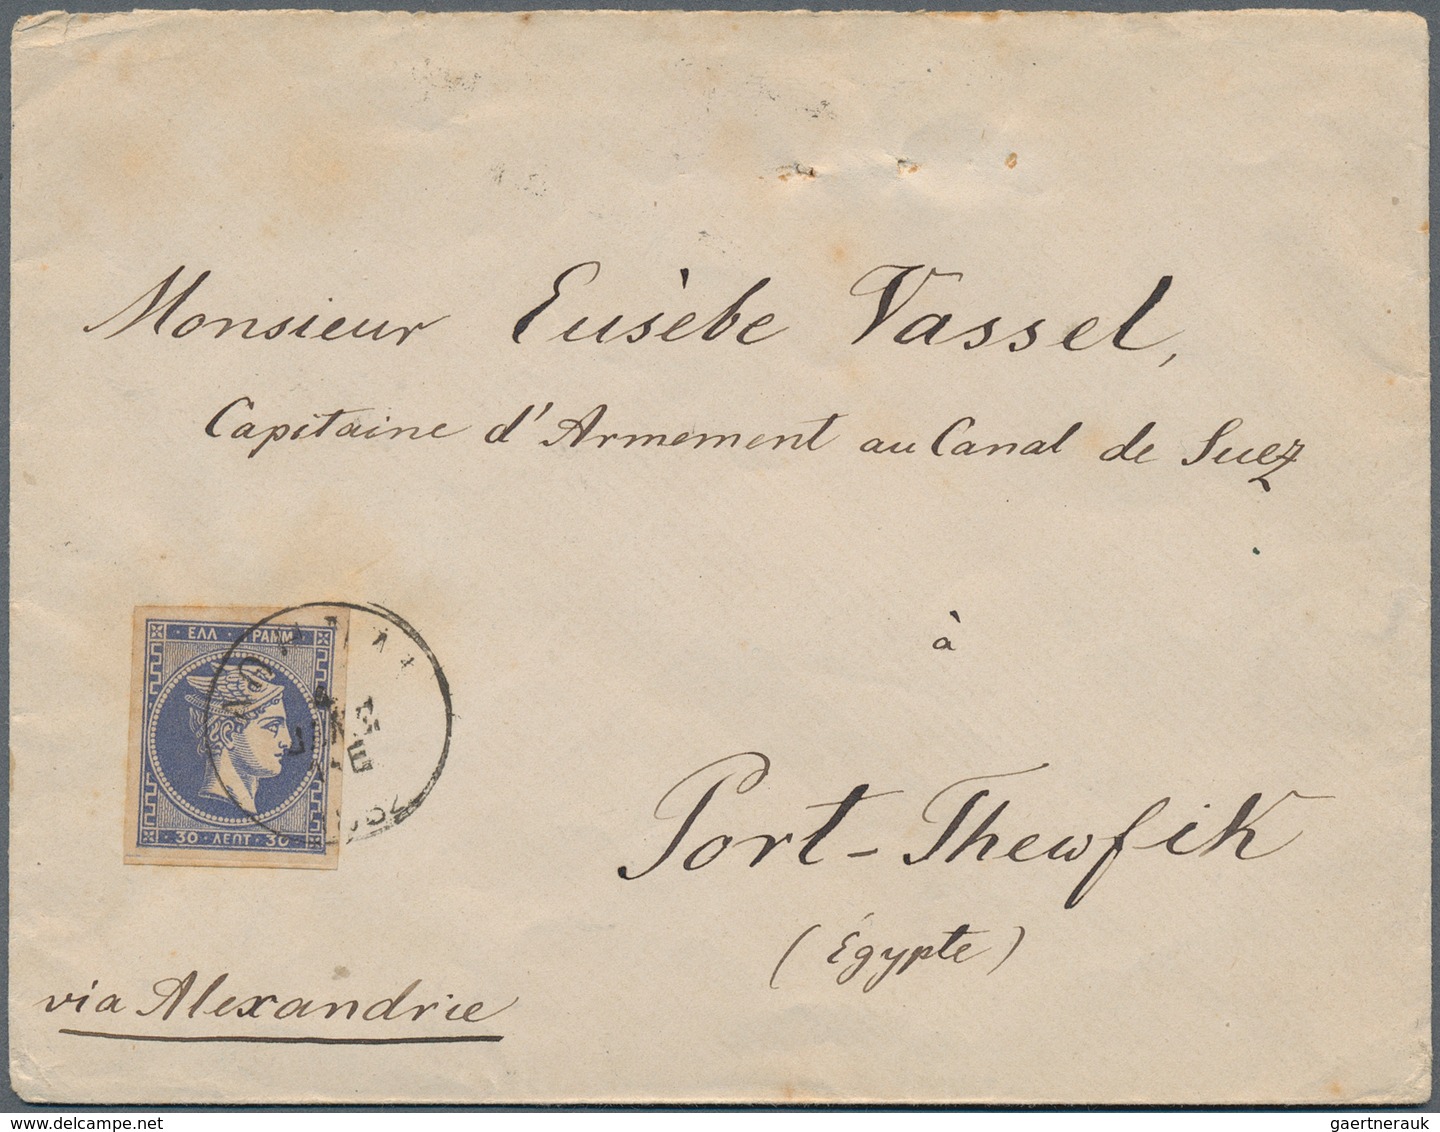 Monsieur Eusèbe Vassel,
Capitaine d'Armement au Canal de Suez
à
Port-Thewfik
(Égypte)
via Alexandrie
ΕΛΛ ΓΡΑΜΜ
30 · ΛΕΠΤ · 30
gaertnerauk